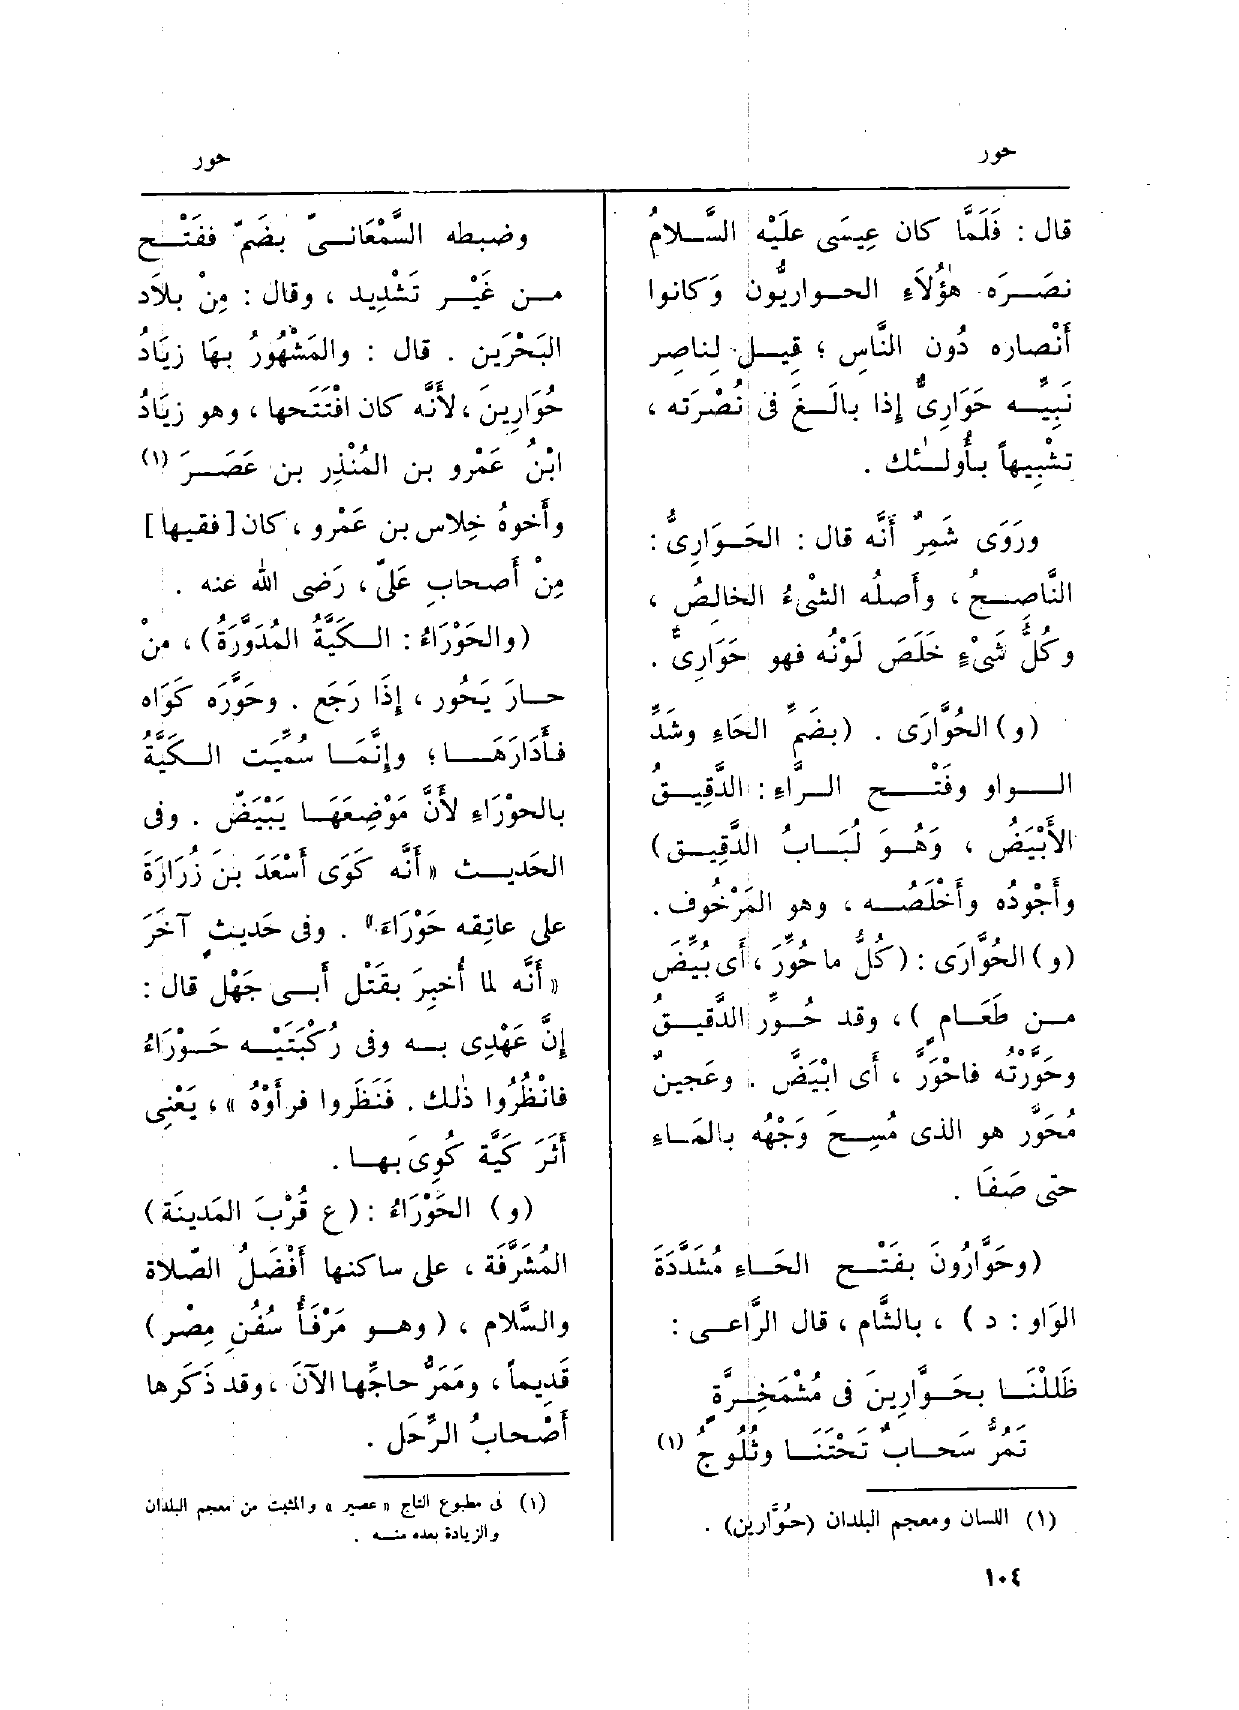 حور
حور
قال : فَلَمَّا كان عِيسَى علَيْه السَّلامُ
نصَرَه هٰؤُلَاءِ الحواريُّون وَكانوا
أَنْصاره دُون النَّاس ؛ قِيل لِناصِر
نَبِيِّه حَوَارِىٌّ إذا بالَغَ فى نُصْرَته ،
تشْبِيهاً بأُولٰئك .
ورَوَى شَمِرٌ أَنَّه قال : الحَوَارِىُّ :
النَّاصِحُ ، وأَصلُه الشىْءُ الخالِصُ ،
وكُلُّ شَىْءٍ خَلَصَ لَوْنُه فهو حَوَارِىٌّ .
(و) الحُوَّارَى . (بضَمِّ الحَاءِ وشَدِّ
الواو وفَتْح الرَّاءِ : الدَّقِيقُ
الأَبْيَضُ ، وَهُو لُبَابُ الدَّقِيق)
وأَجْودُه وأَخْلَصُه ، وهو المَرْخُوف .
(و) الحُوَّارَى : (كُلُّ ما حُوِّرَ ، أَى بُيِّضَ
من طَعَامٍ ) ، وقد حُوِّر الدَّقيقُ
وحَوَّرْتُه فاحْوَرَّ ، أَى ابْيَضَّ . وعَجينٌ
مُحَوَّر هو الذى مُسِحَ وَجْهُه بالمَاءِ
حتى صَفَا .
(وحَوَّارُونَ بفَتْح الحَاءِ مُشَدَّدَة
الوَاو : د ) ، بالشَّام ، قال الرَّاعى :
ظَلِلْنَا بحَوَّارِينَ فى مُشْمَخِرَّةٍ
تَمُرُّ سَحابٌ تَحْتَنَا وثُلُوجُ (١)
(١) اللسان ومعجم البلدان (حُوَّارين) .
١٠٤
وضبطه السَّمْعَانىّ بضَمّ ففَتْح
من غَيْر تَشْدِيد ، وقال : مِنْ بلَاد
البَحْرَين . قال : والمَشْهُورُ بهَا زيَادُ
حُوَارِينَ ، لأَنَّه كان افْتَتَحها ، وهو زيَادُ
ابْنُ عَمْرو بن المُنْذِر بن عَصَرَ (١)
وأَخوهُ خِلاس بن عَمْرو ، كان [فقيها]
مِنْ أَصحابِ عَلىّ ، رَضى الله عنه .
(والحَوْرَاءُ : الكَيَّةُ المُدَوَّرَةُ) ، من
حارَ يَحُور ، إذَا رَجَع . وحَوَّرَه كَوَاه
فأَدَارَهَا ؛ وإنَّمَا سُمِّيَت الكَيَّةُ
بالحوْرَاءِ لأَنَّ مَوْضِعَهَا يَبْيَضّ . وفى
الحَديث « أَنَّه كَوَى أَسْعَدَ بنَ زُرَارَةَ
على عاتِقه حَوْرَاءَ» . وفى حَديثٍ آخَرَ
« أَنَّه لما أُخبِرَ بقَتْل أَبى جَهْل قال :
إنَّ عَهْدِى به وفى رُكْبَتَيْه حَوْرَاءُ
فانْظُرُوا ذٰلك . فَنَظَروا فرأَوْهُ » ، يَعْنِى
أَثَرَ كَيَّة كُوِىَ بها .
(و) الحَوْرَاءُ : (ع قُرْبَ المَدينَة)
المُشَرَّفَة ، على ساكنها أَفْضَلُ الصّلاة
والسَّلام ، ( وهو مَرْفَأُ سُفُنِ مِصْر )
قَدِيماً ، ومَمَرُّ حاجِّها الآنَ ، وقد ذَكَرها
أَصْحابُ الرِّحَل .
(١) فى مطبوع التاج « عصير » والمثبت من معجم البلدان
والزيادة بعده منه .